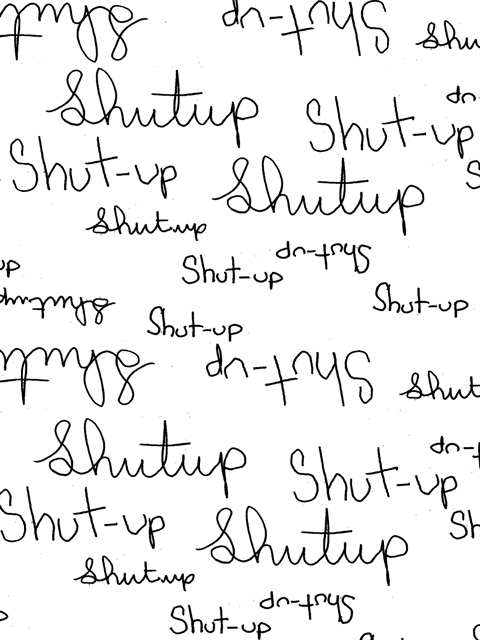 Shutup
Shut-up
Shu
Shutup
up
Shut-up
Shut-up
S
Shutup
Shutup
up
Shut-up
Shut-up
Shutup
Shut-up
Shut-up
Shutup
Shut-up
Shut
Shutup
up
Shut-up
Shut-up
Sh
Shutup
Shutup
Shut-up
Shut-up